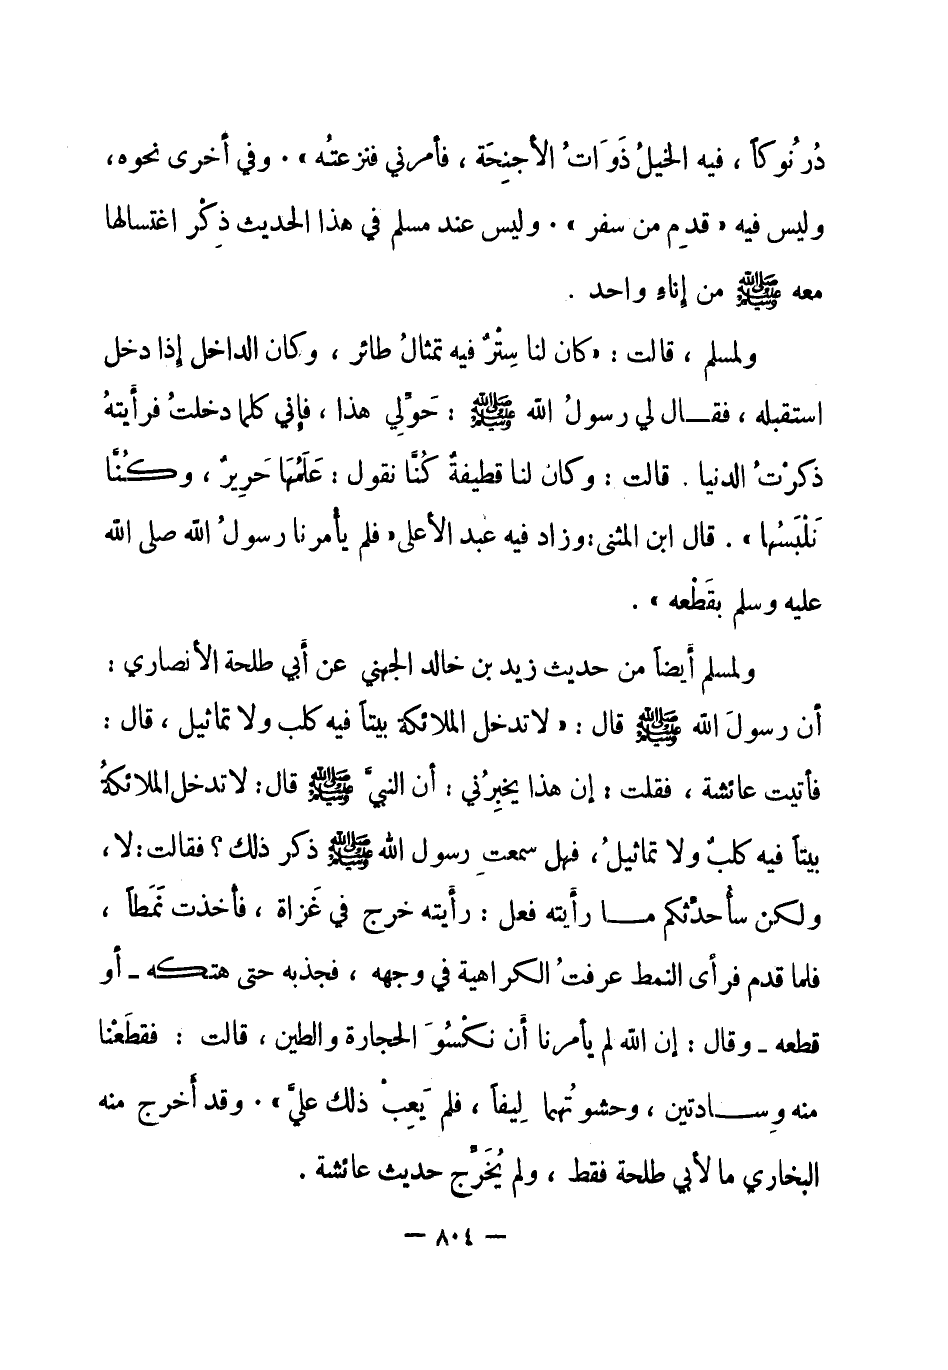 دُرْنُوكاً ، فيه الخيلُ ذَوَاتُ الأجنِحَة ، فأمرني فنزعتُه » . وفي أخرى نحوه ،
وليس فيه « قدِم من سفر » . وليس عند مسلم في هذا الحديث ذِكْر اغتسالها
معه ﷺ من إناءٍ واحد .
ولمسلم ، قالت : «كان لنا سِتْرٌ فيه تمثالُ طائر ، وكان الداخل إذا دخل
استقبله ، فقـــال لي رسولُ الله ﷺ : حَوِّلي هذا ، فإني كلما دخلتُ فرأيتهُ
ذكرْتُ الدنيا . قالت : وكان لنا قطيفةٌ كُنَّا نقول : عَلَمُهَا حَرِيرٌ ، وكُنَّا
نَلْبَسُها » . قال ابن المثنى:وزاد فيه عبد الأعلى« فلم يأمرنا رسولُ الله صلى الله
عليه وسلم بقَطْعه » .
ولمسلم أيضاً من حديث زيد بن خالد الجهني عن أبي طلحة الأنصاري :
أن رسولَ الله ﷺ قال : « لاتدخل الملائكة بيتاً فيه كلب ولا تماثيل ، قال :
فأتيت عائشة ، فقلت : إن هذا يخبِرُني : أن النبيَّ ﷺ قال: لاتدخل الملائكةُ
بيتاً فيه كلبٌ ولا تماثيلُ، فهل سمعتِ رسول الله ﷺ ذكر ذلك ؟ فقالت:لا ،
ولكن سأُحدِّثكم مـــا رأيته فعل : رأيته خرج في غَزاة ، فأخذت نَمَطاً ،
فلما قدم فرأى النمط عرفتُ الكراهية في وجهه ، فجذبه حتى هتكـه ـ أو
قطعه ـ وقال : إن الله لم يأمرنا أن نكْسُوَ الحجارة والطين ، قالت : فقطَعْنا
منه وِســـادتين ، وحشوتُهما لِيفاً ، فلم يَعِبْ ذلك عليَّ » . وقد أخرج منه
البخاري ما لأبي طلحة فقط ، ولم يُخَرِّج حديث عائشة .
— ٨٠٤ —